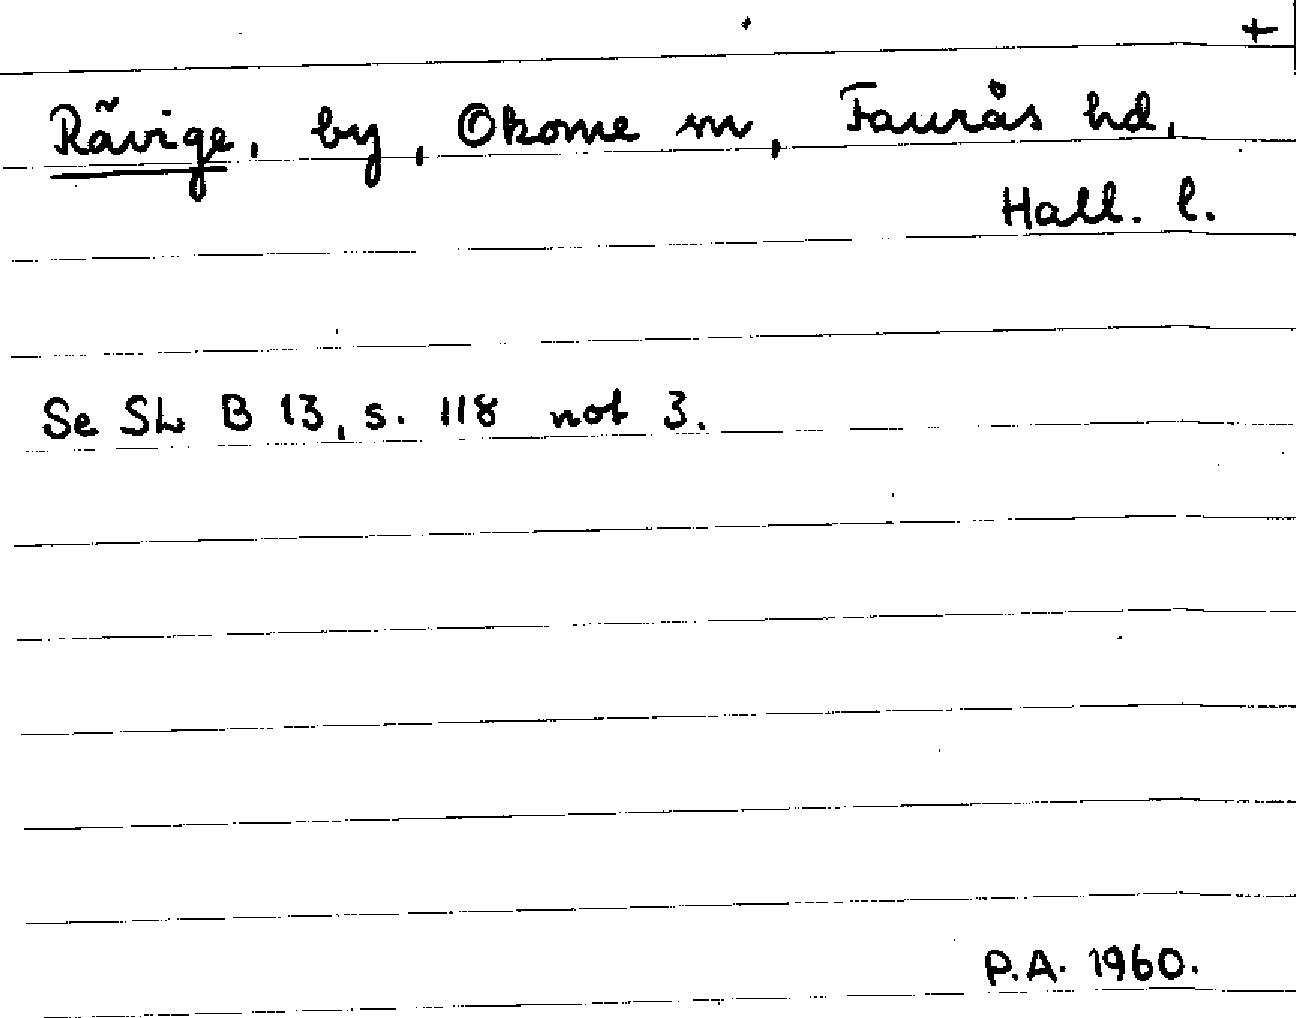 +
Rävige, by, Okome sn, Faurås hd,
Hall. l.
Se SL B 13, s. 118 not 3.
P.A. 1960.